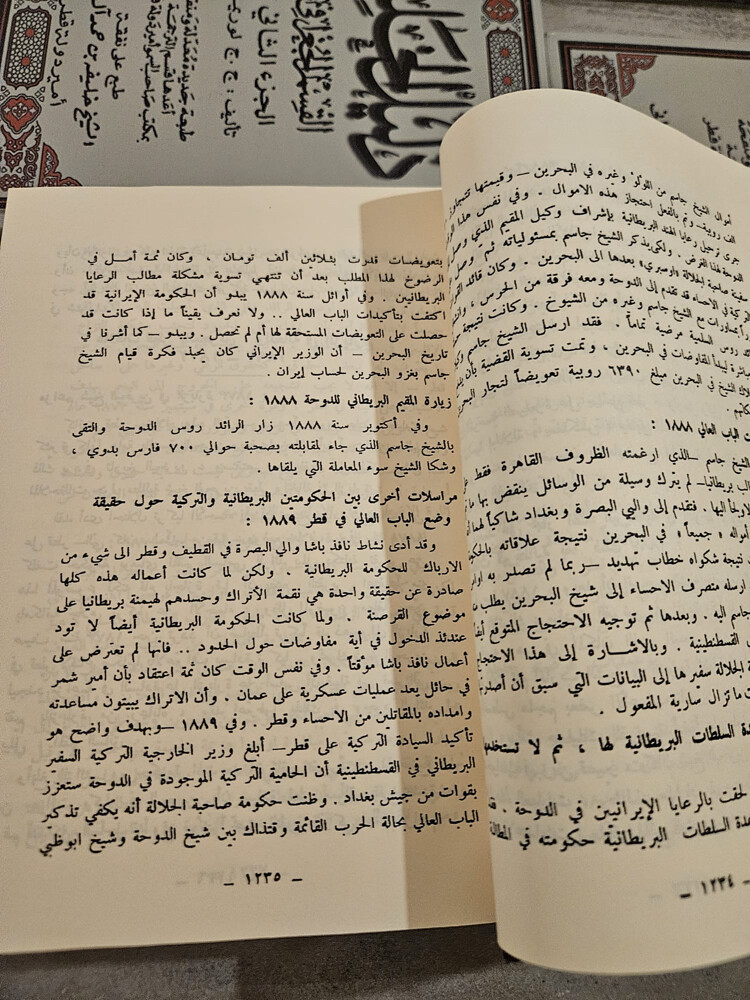 دليل الخليج
القسم الجغرافي
الجزء الثاني
تأليف : ج . ج لوريمر
طبعة جديدة معدلة ومنقحة
أعدها قسم الترجمة
بمكتب صاحب السمو أمير دولة قطر
طبع على نفقة
الشيخ خليفة بن حمد آل
أمير دولة قطر
أموال الشيخ جاسم من اللؤلؤ وغيره في البحرين — وقيمتها تتجاوز
الف روبية. وتم بالفعل احتجاز هذه الاموال . وفي نفس هذا
جرى ترحيل رعايا الهند البريطانية بإشراف وكيل المقيم الذي وصل
الدوحة لهذا الغرض . ولكي يذكر الشيخ جاسم بمسئولياته ثم وصل
سفينة صاحبة الجلالة «اوسبري» بعدها الى البحرين . وكان قائد
التركية في الاحساء قد تقدم إلى الدوحة ومعه فرقة من الحرس ،
بمحاورات مع الشيخ جاسم وغيره من الشيوخ . وكانت نتيجة
روس السلمية مرضية تماماً . فقد ارسل الشيخ جاسم
ليبدأ المفاوضات في البحرين ، وتمت تسوية القضية بأن
الشيخ في البحرين مبلغ ٦٣٩٠ روبية تعويضاً لتجار
الباب العالي ١٨٨٨ :
الشيخ جاسم —الذي ارغمته الظروف القاهرة فقط
بريطانيا— لم يترك وسيلة من الوسائل ينقض بها
اليها . فتقدم إلى واليي البصرة وبغداد شاكياً
امواله « جميعاً » في البحرين نتيجة علاقاته
نتيجة شكواه خطاب تهديد —ربما لم تصدر به
ارسله متصرف الاحساء إلى شيخ البحرين يطلب
جاسم اليه . وبعدها تم توجيه الاحتجاج المتوقع
القسطنطينية . وبالاشارة إلى هذا الاحتجاج
الجلالة سفيرها إلى البيانات التي سبق أن
ما تزال سارية المفعول .
السلطات البريطانية لها ، ثم لا
لحقت بالرعايا الإيرانيين في الدوحة .
السلطات البريطانية حكومته في
— ١٢٣٤ —
بتعويضات قدرت بثلاثين ألف تومان ، وكان ثمة أمــل في
الرضوخ لهذا المطلب بعد أن تنتهي تسوية مشكلة مطالب الرعايا
البريطانيين . وفي أوائل سنة ١٨٨٨ يبدو أن الحكومة الإيرانية قد
اكتفت بتأكيدات الباب العالي .. ولا نعرف يقيناً ما إذا كانت قد
حصلت على التعويضات المستحقة لها أم لم تحصل . ويبدو —كما أشرنا في
تاريخ البحرين — أن الوزير الإيراني كان يحبذ فكرة قيام الشيخ
جاسم بغزو البحرين لحساب إيران .
زيارة المقيم البريطاني للدوحة ١٨٨٨ :
وفي أكتوبر سنة ١٨٨٨ زار الرائد روس الدوحة والتقى
بالشيخ جاسم الذي جاء لمقابلته بصحبة حوالي ٧٠٠ فارس بدوي ،
وشكا الشيخ سوء المعاملة التي يلقاها .
مراسلات أخرى بين الحكومتين البريطانية والتركية حول حقيقة
وضع الباب العالي في قطر ١٨٨٩ :
وقد أدى نشاط نافذ باشا والي البصرة في القطيف وقطر الى شيء من
الارباك للحكومة البريطانية . ولكن لما كانت أعماله هذه كلها
صادرة عن حقيقة واحدة هي نقمة الأتراك وحسدهم لهيمنة بريطانيا على
موضوع القرصنة . ولما كانت الحكومة البريطانية أيضاً لا تود
عندئذ الدخول في أية مفاوضات حول الحدود .. فانها لم تعترض على
أعمال نافذ باشا مؤقتاً . وفي نفس الوقت كان ثمة اعتقاد بأن أمير شمر
في حائل يعد عمليات عسكرية على عمان . وأن الاتراك يبيتون مساعدته
وامداده بالمقاتلين من الاحساء وقطر . وفي ١٨٨٩ —وبهدف واضح هو
تأكيد السيادة التركية على قطر— أبلغ وزير الخارجية التركية السفير
البريطاني في القسطنطينية أن الحامية التركية الموجودة في الدوحة ستعزز
بقوات من جيش بغداد . وظنت حكومة صاحبة الجلالة أنه يكفي تذكير
الباب العالي بحالة الحرب القائمة وقتذاك بين شيخ الدوحة وشيخ ابوظبي
— ١٢٣٥ —